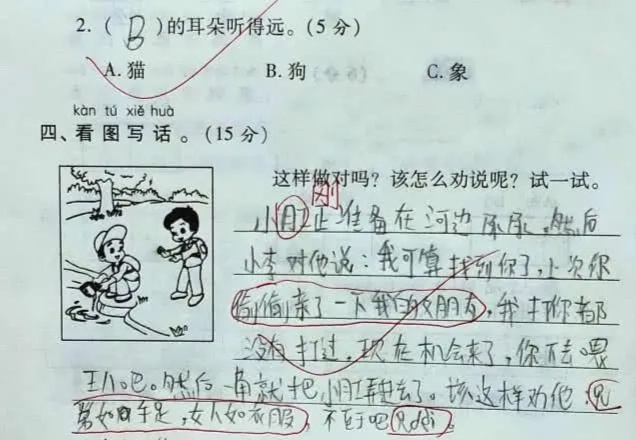 2. ( B )的耳朵听得远。(5 分)
A. 猫 B. 狗 C. 象
kàn tú xiě huà
四、看图写话。(15 分)
这样做对吗?该怎么劝说呢?试一试。
小肛正准备在河边尿尿,然后
小李对他说:我可算找到你了,上次你
偷偷亲了一下我的女朋友,我打你都
没有打过,现在机会来了,你下去喂
王八吧。然后一角就把小肛弄去了。该这样劝他:兄
弟如手足,女人如衣服,不至于吧